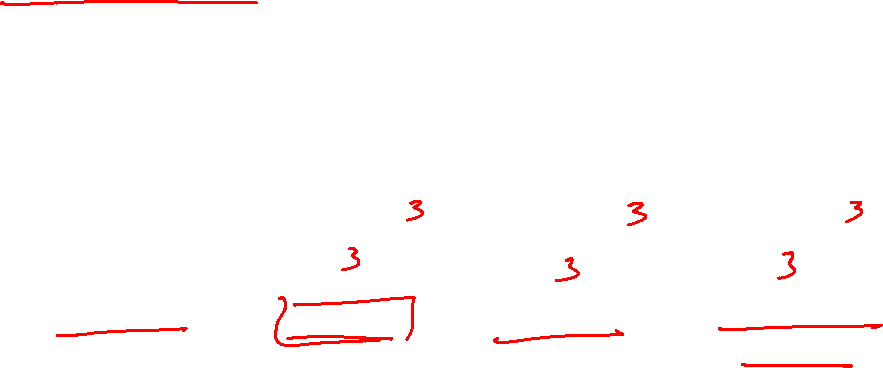 3 3 3
3 3 3